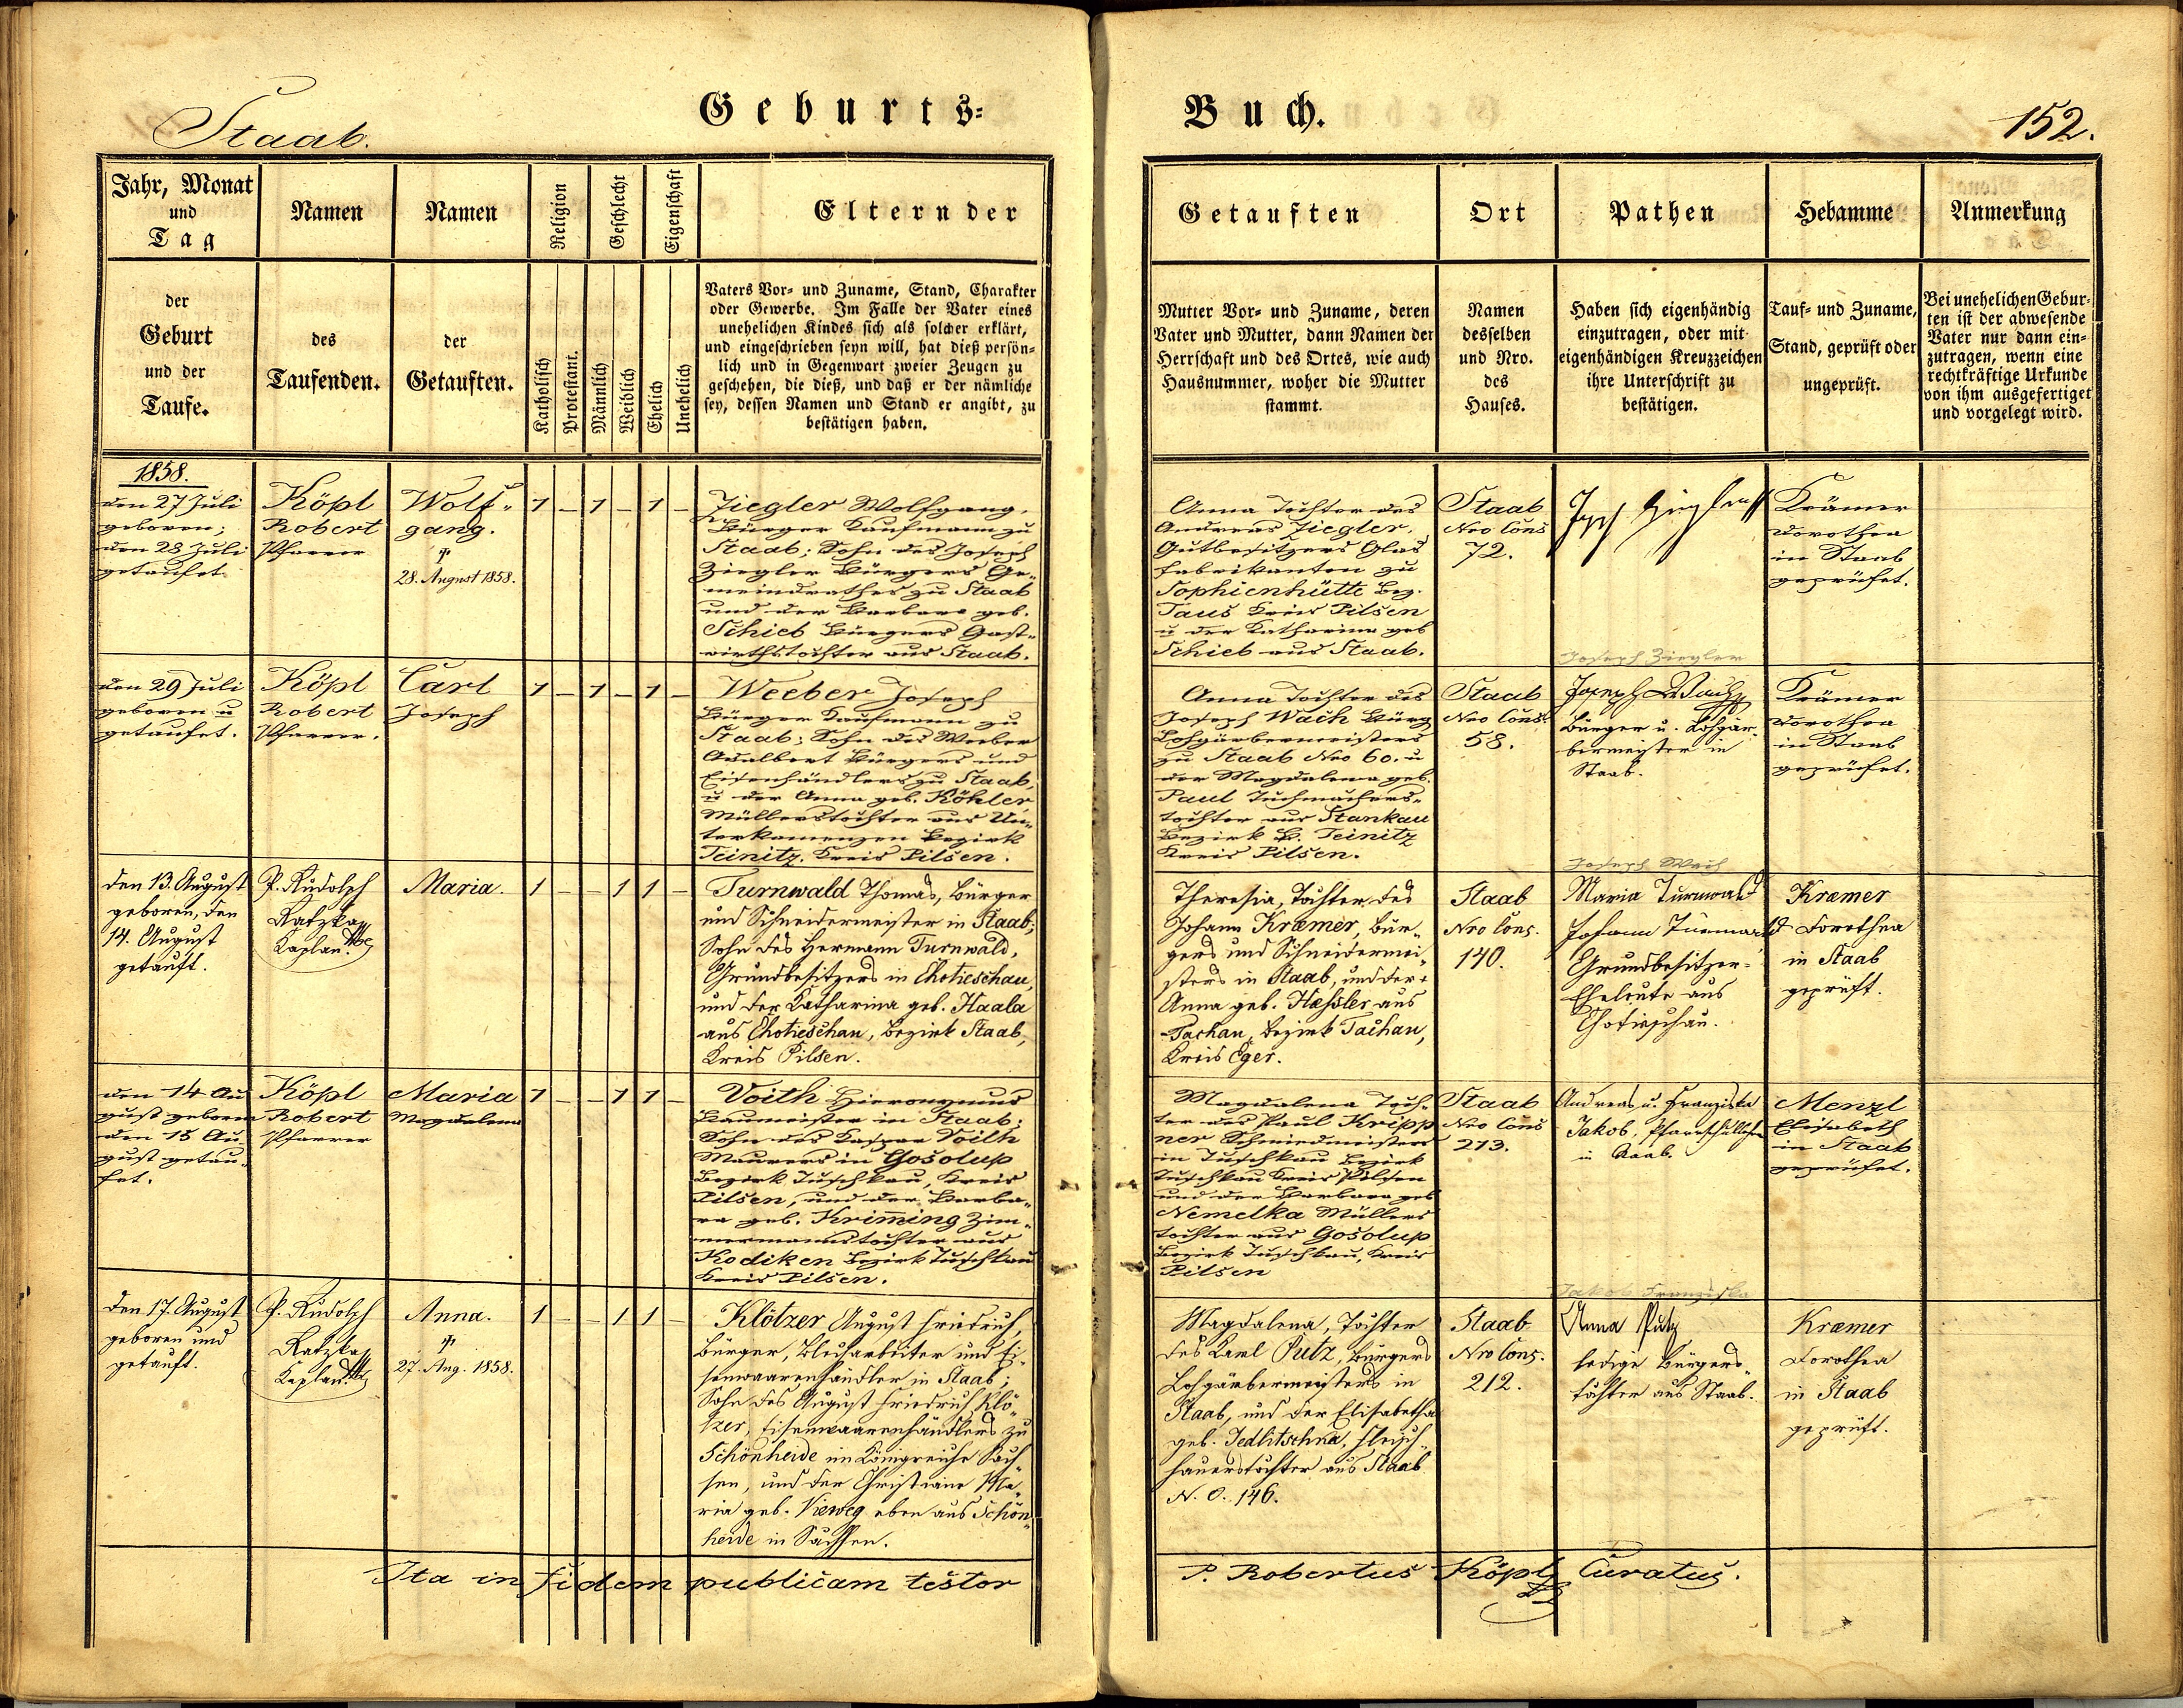 Staab.
Geburts=
Buch.
152.
Jahr, Monat
und
Tag
Namen
Namen
Religion
Geschlecht
Eigenschaft
Eltern der
der
Geburt
und der
Taufe.
des
Taufenden.
der
Getauften.
Katholisch
Protestant.
Männlich
Weiblich
Ehelich
Unehelich
Vaters Vor- und Zuname, Stand, Charakter
oder Gewerbe. Im Falle der Vater eines
unehelichen Kindes sich als solcher erklärt,
und eingeschrieben seyn will, hat dieß persön=
lich und in Gegenwart zweier Zeugen zu
geschehen, die dieß, und daß er der nämliche
sey, dessen Namen und Stand er angibt, zu
bestätigen haben.
Getauften
Ort
Pathen
Hebamme
Anmerkung
Mutter Vor- und Zuname, deren
Vater und Mutter, dann Namen der
Herrschaft und des Ortes, wie auch
Hausnummer, woher die Mutter
stammt.
Namen
desselben
und Nro.
des
Hauses.
Haben sich eigenhändig
einzutragen, oder mit
eigenhändigen Kreuzzeichen
ihre Unterschrift zu
bestätigen.
Tauf- und Zuname,
Stand, geprüft oder
ungeprüft.
Bei unehelichen Gebur=
ten ist der abwesende
Vater nur dann ein=
zutragen, wenn eine
rechtkräftige Urkunde
von ihm ausgefertiget
und vorgelegt wird.
1858.
den 27 Juli
geboren;
den 28 Juli
getaufet.
Köpl
Robert
Pfarrer
Wolf-
gang.
†
28. August 1858.
1 – 1 – 1 –
Ziegler Wolfgang,
Bürger Kaufmann zu
Staab; Sohn des Joseph
Ziegler Bürgers Ge-
meindrathes zu Staab
und der Barbara geb.
Schieb Bürgers Gast-
wirthstochter aus Staab.
Anna Tochter des
Andreas Ziegler,
Gutbesitzers Glas
fabrikanten zu
Sophienhütte Bez.
Taus Kreis Pilsen
u der Katharina geb
Schieb aus Staab.
Staab
Nro Cons
72.
Joseph Ziegler
Krämer
Dorothea
in Staab
geprüfet.
den 29 Juli
geboren u
getaufet.
Köpl
Robert
Pfarrer.
Carl
Joseph
1 – 1 – 1 –
Weeber Joseph
Bürger Kaufmann zu
Staab; Sohn des Weeber
Adalbert Bürgers und
Eisenhändlers zu Staab,
u der Anna geb. Köhler
Müllerstochter aus Un-
terkamenzen Bezirk
Teinitz, Kreis Pilsen.
Anna Tochter des
Joseph Wach Bürg
Lohgärbermeisters
zu Staab Nro 60. u
der Magdalena geb.
Paul Tuchmachers-
tochter aus Stankau
Bezirk B. Teinitz
Kreis Pilsen.
Staab
Nro Cons.
58.
Joseph Wach
Bürger u. Lohgär-
bermeister in
Staab.
Joseph Wach
Krämer
Dorothea
in Staab
geprüfet.
den 13. August
geboren, den
14. August
getauft.
P. Rudolph
Ratzka
Kaplan.
Maria.
1 – – 1 1 –
Turnwald Thomas, Bürger
und Schneidermeister in Staab;
Sohn des Hermann Turnwald,
Grundbesitzers in Chotieschau,
und der Katharina geb. Haala
aus Chotieschau, Bezirk Staab,
Kreis Pilsen.
Theresia, Tochter des
Johann Kræmer, Bür-
gers und Schneidermei-
sters in Staab, und der
Anna geb. Hæssler aus
Tachau, Bezirk Tachau,
Kreis Eger.
Staab
Nro Cons.
140.
Maria Turnwald
Johann Turnwald
Grundbesitzer-
Eheleute aus
Chotieschau.
Kræmer
Dorothea
in Staab
geprüft.
den 14 Au
gust geboren
den 15 Au-
gust getau-
fet.
Köpl
Robert
Pfarrer
Maria
Magdalena
1 – – 1 1 –
Voith Hieronymus
Baumeister in Staab;
Sohn des Kaspar Voith
Maurers in Gosolup
Bezirk Tuschkau, Kreis
Pilsen, und der Barba-
ra geb. Krim̄ing Zim-
mermannstochter aus
Kodiken Bezirk Tuschkau
Kreis Pilsen.
Magdalena Toch-
ter des Paul Kripp
ner Schmiedmeisters
in Tuschkau Bezirk
Tuschkau Kreis Pilsen
und der Barbara geb
Nemelka Müllers
tochter aus Gosolup
Bezirk Tuschkau, Kreis
Pilsen
Staab
Nro Cons
213.
Andreas u. Franziska
Jakob, Pfarrschullehrer
in Staab.
Jakob Franziska
Menzl
Elisabeth
in Staab
geprüfet.
den 17. August
geboren und
getauft.
P. Rudolph
Ratzka
Kaplan.
Anna.
†
27. Aug. 1858.
1 – – 1 1 –
Klötzer August Friedrich,
Bürger, Blecharbeiter und Ei-
senwaarenhändler in Staab;
Sohn des August Friedrich Klö-
tzer, Eisenwaarenhändlers zu
Schönheide im Königreiche Sach-
sen, und der Christiane Ma-
ria geb. Vieweg eben aus Schön-
heide in Sachsen.
Magdalena, Tochter
des Karl Putz, Bürgers
Lohgärbermeisters in
Staab, und der Elisabetha
geb. Jedlitschka, Fleisch-
hauerstochter aus Staab
N. C. 146.
Staab
Nro Cons.
212.
Anna Putz
ledige Bürgers-
tochter aus Staab.
Kræmer
Dorothea
in Staab
geprüft.
Ita in fidem publicam testor
P. Robertus Köpl Curatus.